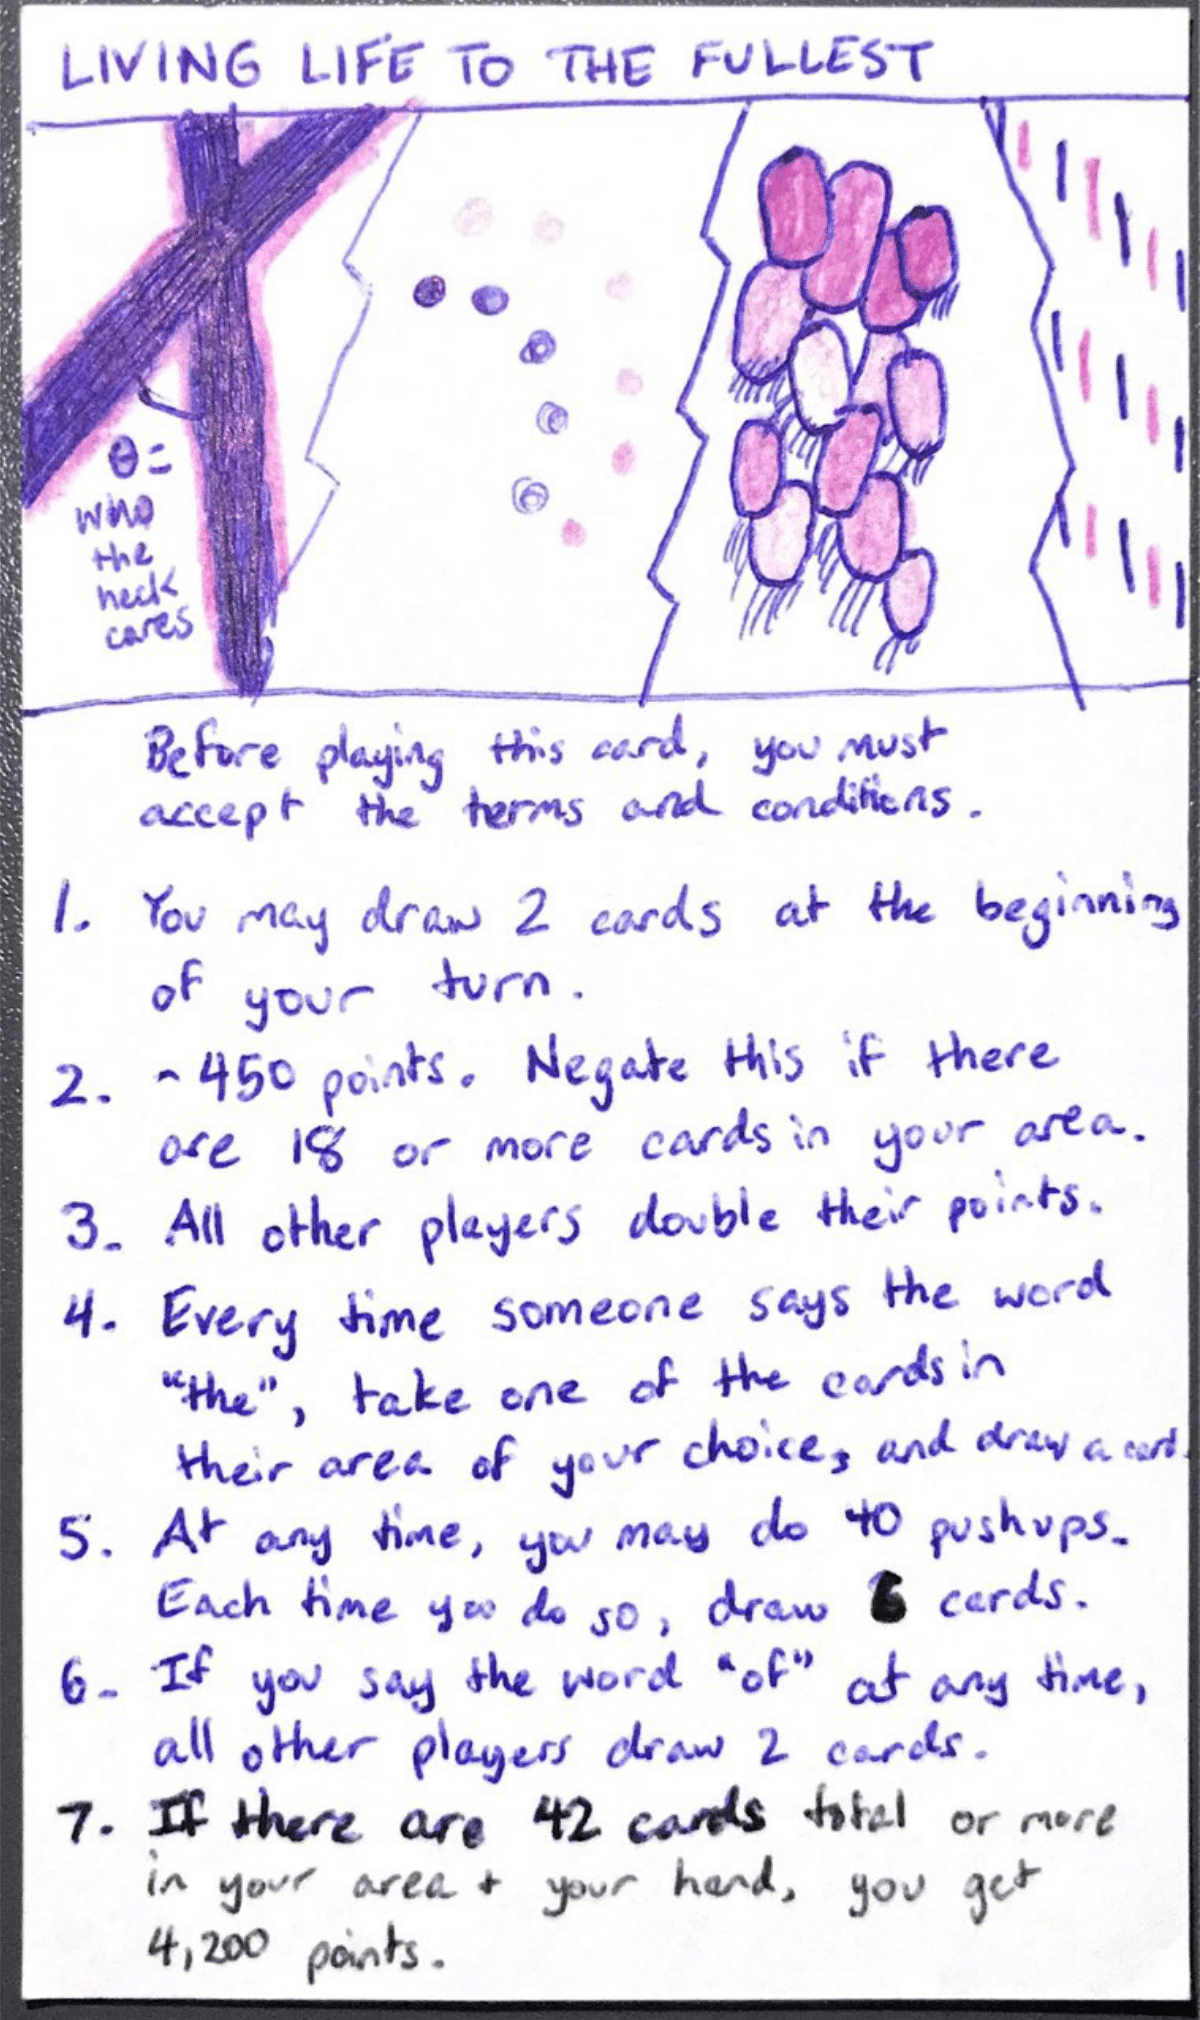 LIVING LIFE TO THE FULLEST
θ=
who
the
heck
cares
Before playing this card, you must
accept the terms and conditions.
1. You may draw 2 cards at the beginning
of your turn.
2. -450 points. Negate this if there
are 18 or more cards in your area.
3. All other players double their points.
4. Every time someone says the word
"the", take one of the cards in
their area of your choice, and draw a card.
5. At any time, you may do 40 pushups.
Each time you do so, draw 6 cards.
6. If you say the word "of" at any time,
all other players draw 2 cards.
7. If there are 42 cards total or more
in your area + your hand, you get
4,200 points.